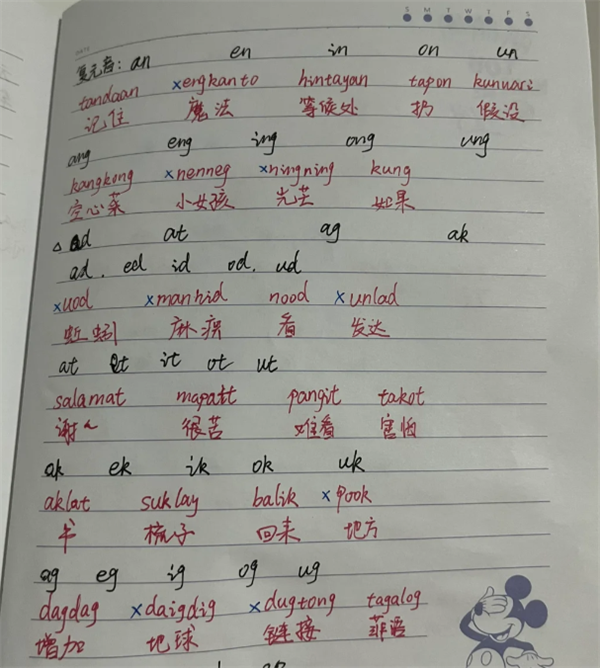 S M T W T F S
DATE
复元音: an en in on un
tandaan xengkanto hintayan tapon kunwari
记住 魔法 等候处 扔 假设
ang eng ing ong ung
kangkong xnenneg xningning kung
空心菜 小女孩 光芒 如果
△ ad at ag ak
ad. ed id od. ud
xuod xmanhid nood xunlad
蚯蚓 麻痹 看 发达
at et it ot ut
salamat mapait pangit takot
谢~ 很苦 难看 害怕
ak ek ik ok uk
aklat suklay balik xpook
书 梳子 回来 地方
ag eg ig og ug
dagdag xdaigdig xdugtong tagalog
增加 地球 链接 菲语